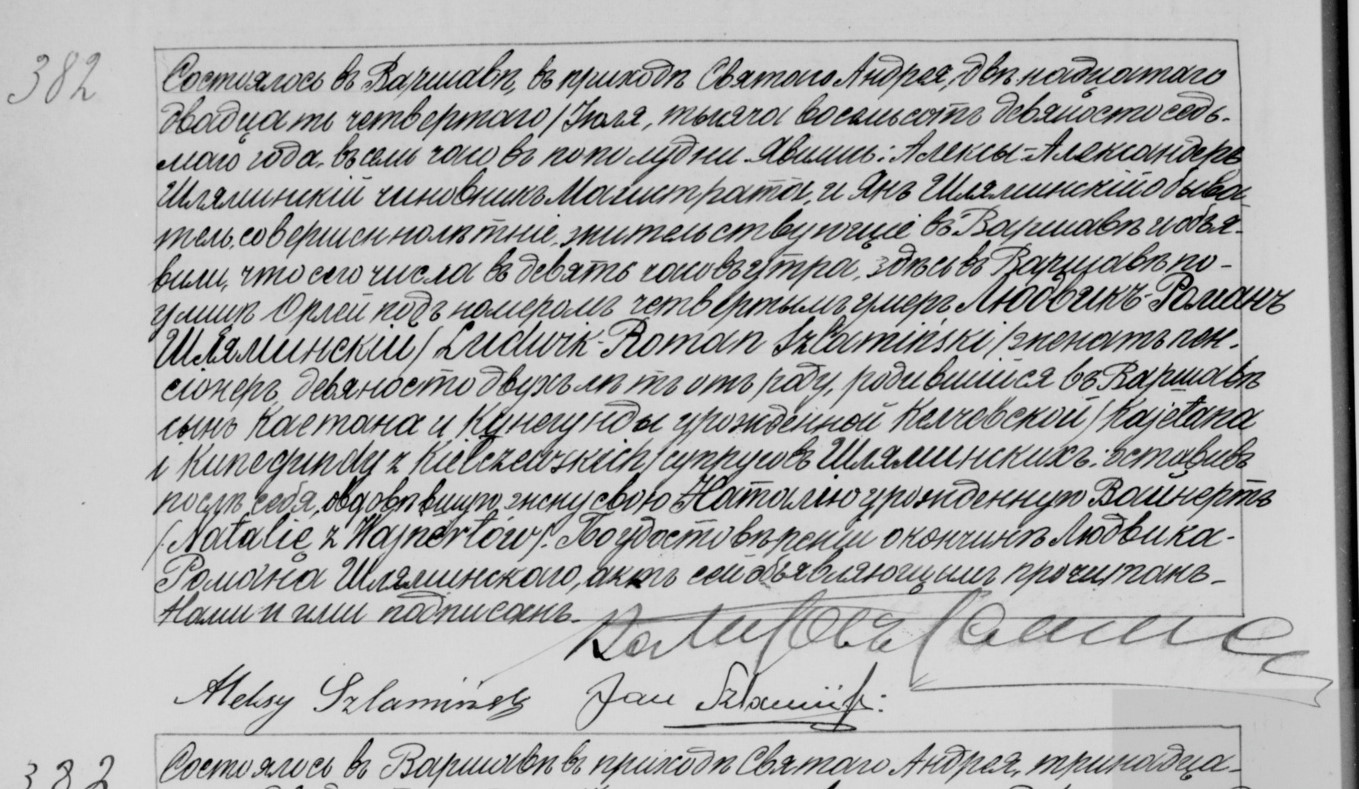 382
Состоялось въ Варшавѣ, въ приходѣ Святаго Андрея, двѣнадцатаго
двадцать четвертаго / Іюля, тысяча восемьсотъ девяносто седь-
маго года, въ семь часовъ по полудни. Явились: Алексы-Александеръ
Шляминскій чиновникъ Магистрата, и Янъ Шляминскій обыва-
тель, совершеннолѣтніе, жительствующіе въ Варшавѣ и объя-
вили, что сего числа въ девять часовъ утра, здѣсь въ Варшавѣ по-
улицѣ Орлей подъ номеромъ четвертымъ умеръ Людвикъ-Романъ
Шляминскій / Ludwik-Roman Szlamiński / женатъ пен-
сіонеръ, девяносто двухъ лѣтъ отъ роду, родившійся въ Варшавѣ
сынъ Каетана и Кунегунды урожденной Келчевской / Kajetana
i Kunegundy z Kiełczewskich / супруговъ Шляминскихъ. оставивъ
послѣ себя, овдовѣвшую жену свою Наталію урожденную Войнертъ
/ Natalię z Wajnertów /. По удостовѣреніи о кончинѣ Людвика-
Романа Шляминскаго, актъ сей объявляющимъ прочитанъ-
Нами и ими подписанъ.
Aleksy Szlamiński Jan Szlamiński
382
Состоялось въ Варшавѣ въ приходѣ Святаго Андрея, тринадца-